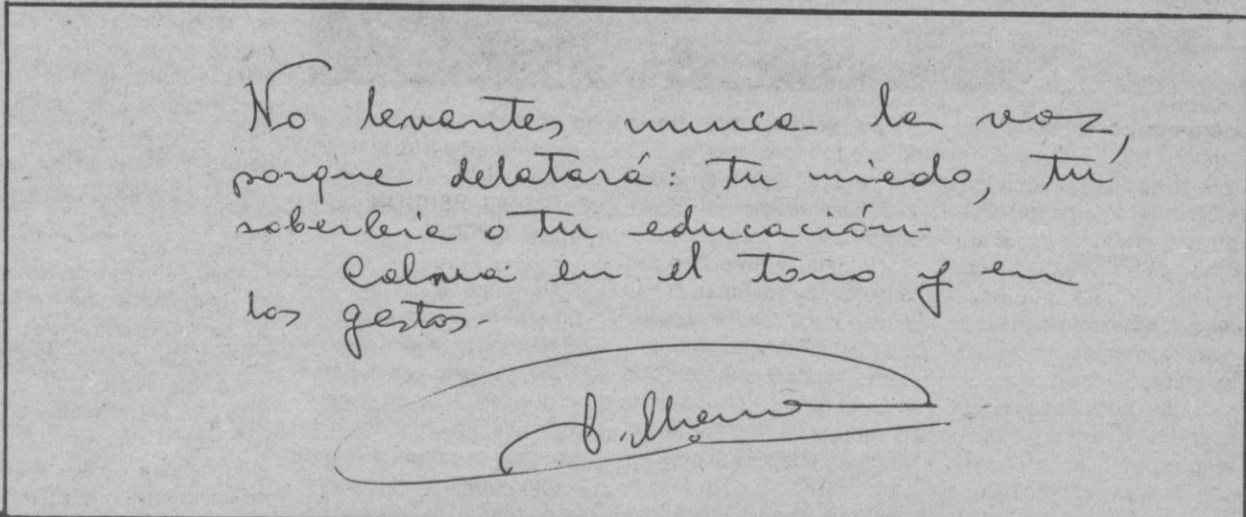 No levantes nunca la voz
porque delatará: tu miedo, tú
soberbia o tu educación-
Calma en el tono y en
los gestos-